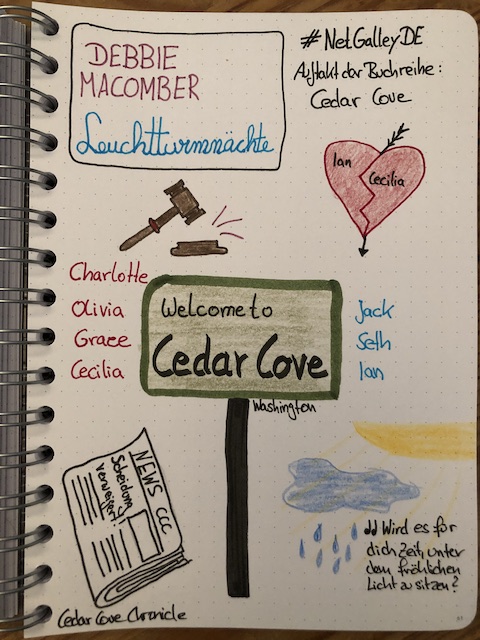 DEBBIE
MACOMBER
Leuchtturmnächte
#NetGalleyDE
Auftakt der Buchreihe:
Cedar Cove
Ian
Cecilia
Charlotte
Olivia
Grace
Cecilia
Welcome to
Cedar Cove
Washington
Jack
Seth
Ian
NEWS CCC
Scheidung
verweigert!
Cedar Cove Chronicle
„Wird es für
dich Zeit, unter
dem fröhlichen
Licht zu sitzen?